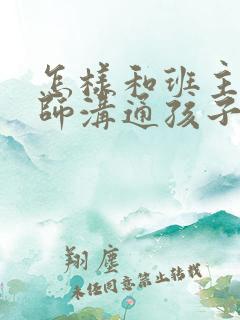 怎样和班主
師溝通孩子
翔塵
未经同意禁止转载